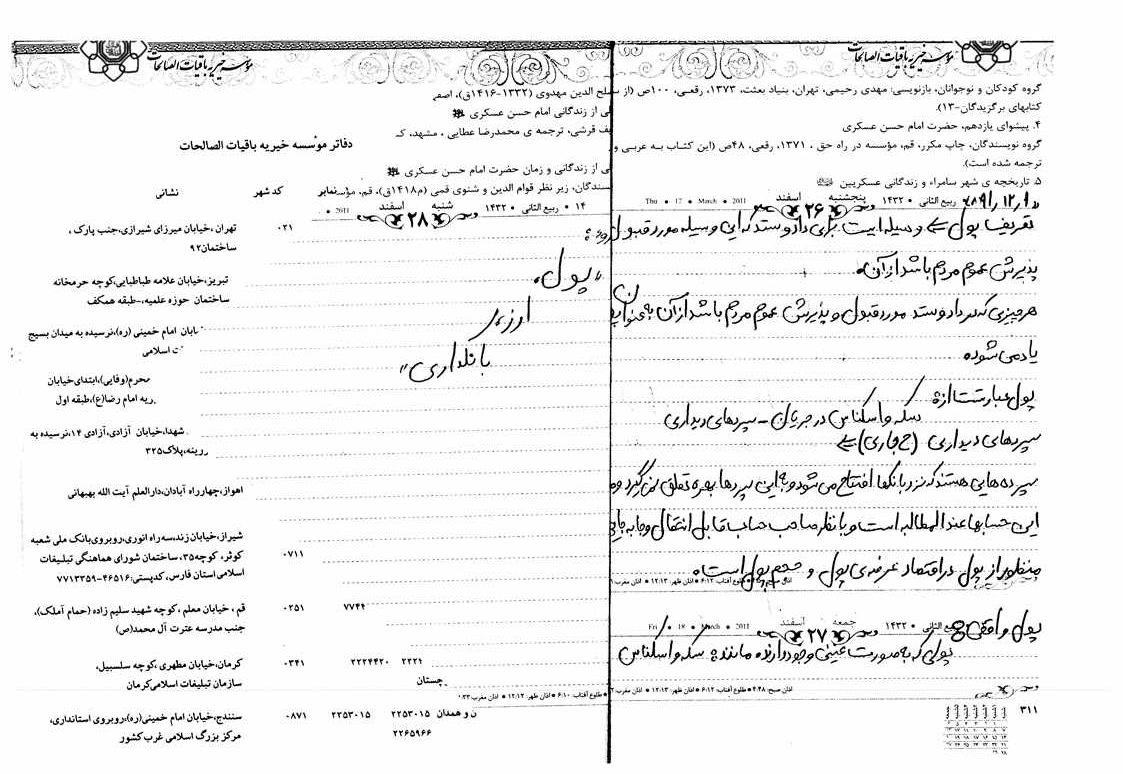 موسسه خیریه باقیات الصالحات
گروه کودکان و نوجوانان، بازنویسی: مهدی رحیمی، تهران، بنیاد بعثت، ۱۳۷۳، رقعی، ۱۰۰ص (از
کتابهای برگزیدگان-۱۳).
۴. پیشوای یازدهم، حضرت امام حسن عسکری
گروه نویسندگان، چاپ مکرر، قم، مؤسسه در راه حق ، ۱۳۷۱، رقعی، ۴۸ص (این کتاب به عربی و
ترجمه شده است).
۵. تاریخچه ی شهر سامراء و زندگانی عسکریین
۸۹/۱۲/۱۰
ربیع الثانی ۱۴۳۲ پنجشنبه ۲۶ اسفند Thu • 17 • March • 2011
تعریف پول ⇐ وسیله ایست برای داد و ستد که این وسیله مورد قبول و
پذیرش عموم مردم باشد از آن
هر چیزی که در داد و ستد مورد قبول و پذیرش عموم مردم باشد از آن به عنوان پول
یاد می شود
پول عبارتست از:
سکه و اسکناس در جریان - سپرده های دیداری
سپرده های دیداری (ح جاری) ⇐
سپرده هایی هستند که نزد بانکها افتتاح می شود و به این سپرده ها بهره تعلق نمی گیرد و
این حسابها عندالمطالبه است و با نظر صاحب حساب قابل انتقال و جا به جایی
منظور از پول در اقتصاد عرضه ی پول و حجم پول است
طلوع آفتاب: ۶:۱۲ • اذان ظهر: ۱۲:۱۳ • اذان مغرب
الثانی ۱۴۳۲ جمعه ۲۷ اسفند Fri • 18 • March • 2011
پول واقعی:
پولی که به صورت عینی وجود دارند مانند: سکه و اسکناس
اذان صبح: ۴:۴۸ • طلوع آفتاب: ۶:۱۲ • اذان ظهر: ۱۲:۱۳ • اذان مغرب
۳۱۱
موسسه خیریه باقیات الصالحات
صلح الدین مهدوی (۱۳۳۲-۱۴۱۶ق)، اصف
ی از زندگانی امام حسن عسکری
یف قرشی، ترجمه ی محمدرضا عطایی ، مشهد، کـ
دفاتر مؤسسه خیریه باقیات الصالحات
ی از زندگانی و زمان حضرت امام حسن عسکری
سندگان، زیر نظر قوام الدین و شنوی قمی (م۱۴۱۸ق)، قم، مؤس
نمابر کد شهر نشانی
۱۴ • ربیع الثانی • ۱۴۳۲ شنبه ۲۸ اسفند 2011
«پول،
ارز،
بانکداری»
۰۲۱ تهران، خیابان میرزای شیرازی،جنب پارک ،
ساختمان۹۲
تبریز،خیابان علامه طباطبایی،کوچه حرمخانه
ساختمان حوزه علمیه،-طبقه همکف
ابان امام خمینی (ره)،نرسیده به میدان بسیج
ت اسلامی
محرم(وفایی)،ابتدای خیابان
ریه امام رضا(ع)،طبقه اول
شهدا،خیابان آزادی،آزادی ۱۴،نرسیده به
رینه،پلاک۳۲۵
اهواز،چهارراه آبادان،دارالعلم آیت الله بهبهانی
شیراز،خیابان زند،سه راه انوری،روبروی بانک ملی شعبه
۰۷۱۱ کوثر، کوچه۳۵، ساختمان شورای هماهنگی تبلیغات
اسلامی استان فارس، کدپستی:۴۶۵۱۶-۷۷۱۳۳۵۹
۷۷۴۴ ۰۲۵۱ قم ، خیابان معلم ،کوچه شهید سلیم زاده (حمام آملک)،
جنب مدرسه عترت آل محمد(ص)
۲۲۲۱ ۲۲۲۴۴۲۰ ۰۳۴۱ کرمان،خیابان مطهری ،کوچه سلسبیل،
جستان سازمان تبلیغات اسلامی کرمان
طلوع آفتاب: ۶:۱۰ • اذان ظهر: ۱۲:۱۲ • اذان مغرب
ن و همدان ۲۲۵۳۰۱۵ ۲۲۵۳۰۱۵ ۰۸۷۱ سنندج،خیابان امام خمینی(ره)،روبروی استانداری،
۲۲۶۵۹۶۶ مرکز بزرگ اسلامی غرب کشور